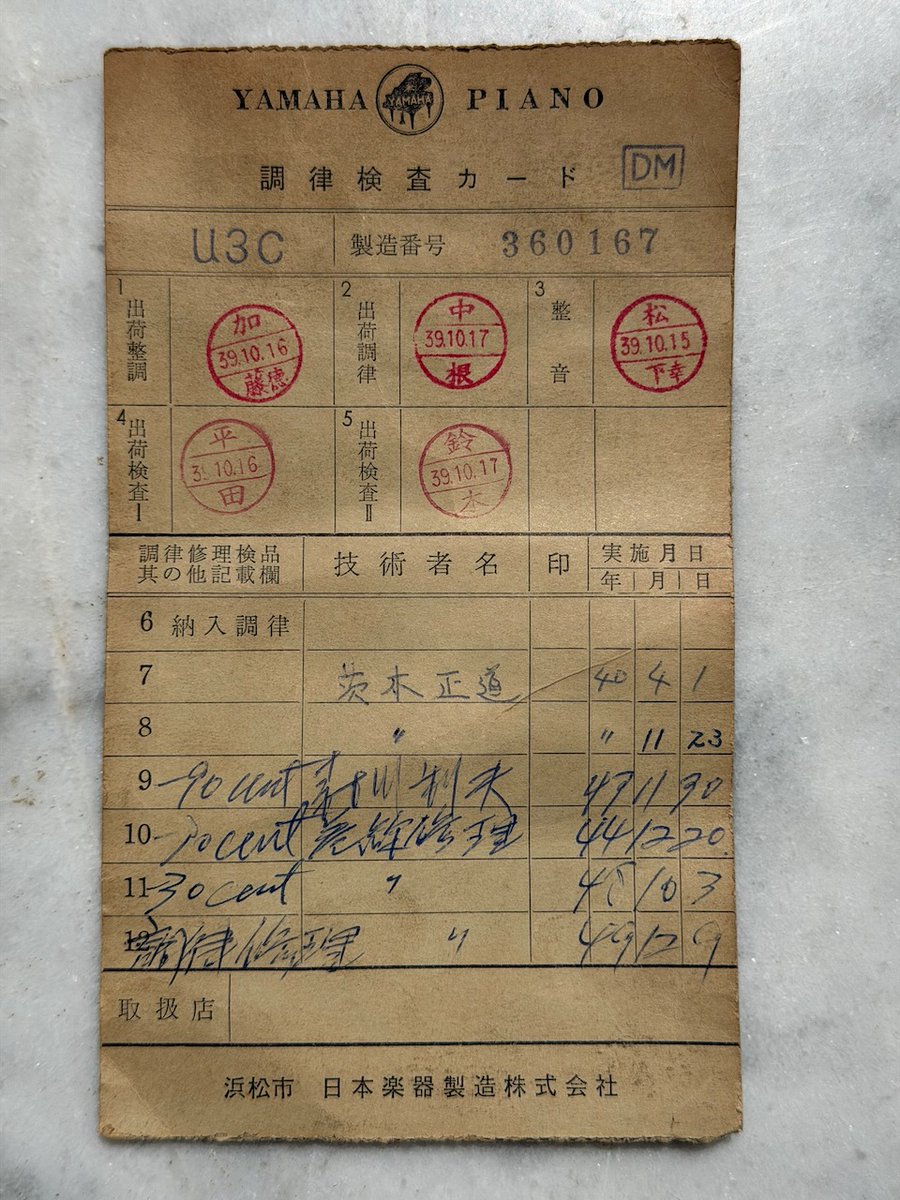 YAMAHA YAMAHA PIANO
調律検査カード DM
U3C 製造番号 360167
1 出荷整調 加 39.10.16 藤徳
2 出荷調律 中 39.10.17 根
3 整音 松 39.10.15 下幸
4 出荷検査Ⅰ 平 39.10.16 田
5 出荷検査Ⅱ 鈴 39.10.17 木
調律修理検品 技術者名 印 実施月日
其の他記載欄 年 月 日
6 納入調律
7 茨木正道 40 4 1
8 〃 〃 11 23
9 -90 cent 11
10 cent 修理 44 12 20
11 -30 cent 〃 10 3
12 調律修理 〃 49 12 9
取扱店
浜松市 日本楽器製造株式会社